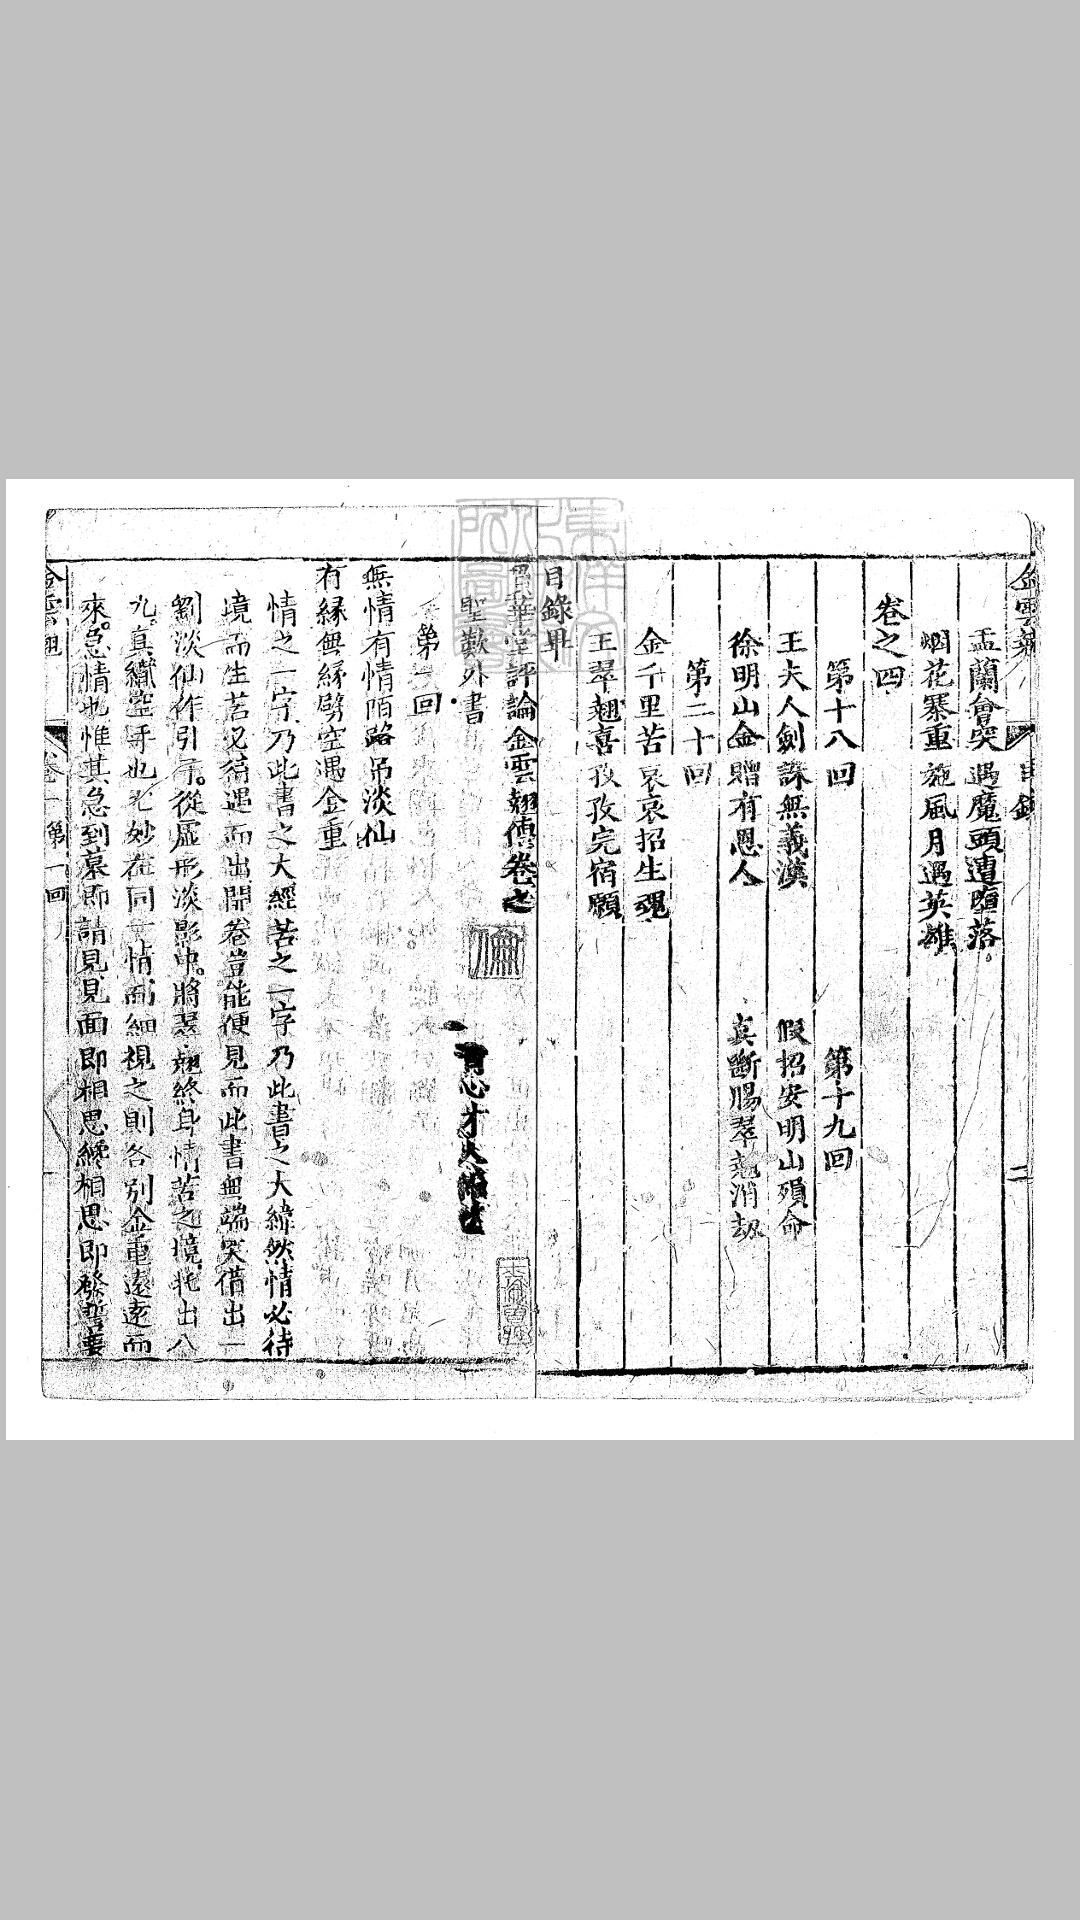 金雲翹 目錄 二
盂蘭會突遇魔頭遭墮落
烟花寨重施風月遇英雄
卷之四
第十八回 第十九回
王夫人劍誅無義漢 假招安明山殞命
徐明山金贈有恩人 真斷腸翠翹消劫
第二十回
金千里苦哀哀招生魂
王翠翹喜孜孜完宿願
目錄畢
貫華堂評論金雲翹傳卷之
聖歎外書 青心才人編
第一回
無情有情陌路吊淡仙
有緣無緣劈空遇金重
情之一字乃此書之大經苦之一字乃此書之大緯然情必待
境而生苦必待遇而出開卷豈能便見而此書無端突借出一
劉淡仙作引子。從虛形淡影中。將翠翹終身情苦之境。托出八
九。真織空手也尤妙在同一情而細視之則各別金重遠遠而
來。急情也惟其急到家即請見見面即相思纔相思即發誓要
金雲翹 卷一 第一回